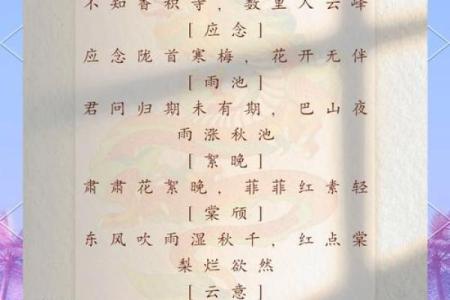 不知香积寺，数里入云峰
[应念]
应念陇首寒梅，花开无伴
[雨池]
君问归期未有期，巴山夜
雨涨秋池
[絮晚]
肃肃花絮晚，菲菲红素轻
[棠颀]
东风吹雨湿秋千，红点棠
梨烂欲然
[云意]